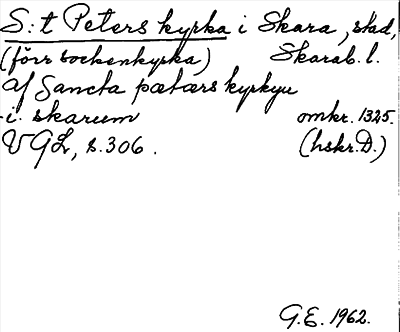 S:t Peters kyrka i Skara, stad,
(förr sockenkyrka) Skarab. l.
af Sancta pætærs kyrkyu
i. skarum omkr. 1325.
VGL, s. 306. (hskr. D.)
G.E. 1962.